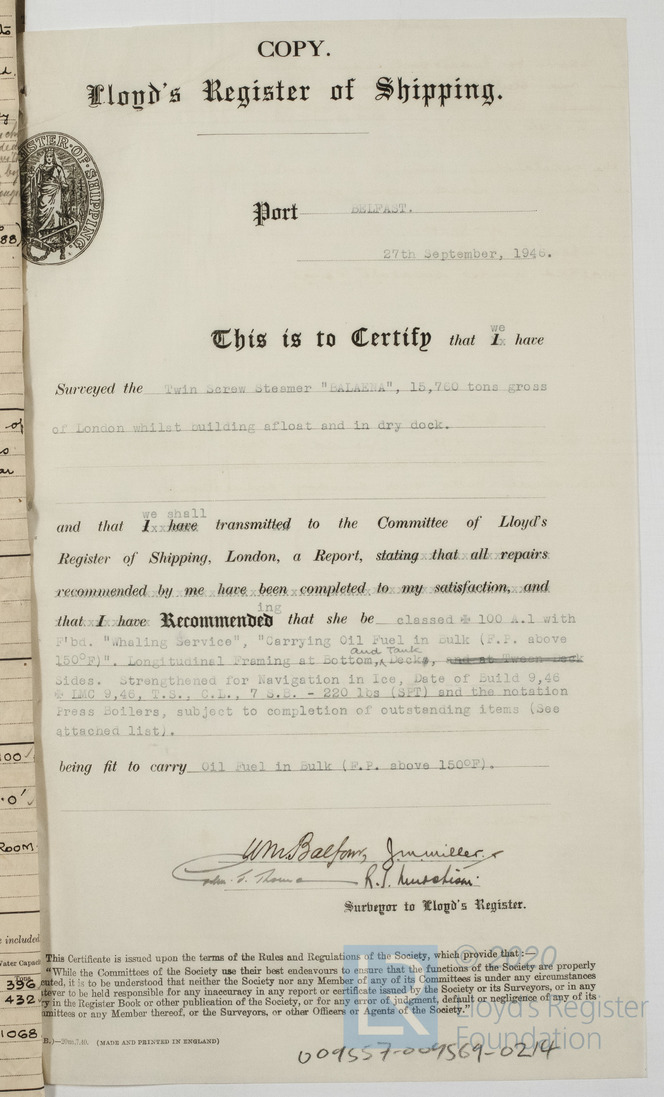 COPY.
Lloyd's Register of Shipping.
REGISTER OF SHIPPING
Port BELFAST.
27th September, 1946.
we
This is to Certify that I have
Surveyed the Twin Screw Steamer "BALAENA", 15,760 tons gross
of London whilst building afloat and in dry dock.
we shall
and that I have transmitted to the Committee of Lloyd's
Register of Shipping, London, a Report, stating that all repairs
recommended by me have been completed to my satisfaction, and
ing
that I have Recommended that she be classed ✠ 100 A.1 with
F'bd. "Whaling Service", "Carrying Oil Fuel in Bulk (F.P. above
and Tank
150°F)". Longitudinal Framing at Bottom, Decks, and at Tween Deck
Sides. Strengthened for Navigation in Ice, Date of Build 9,46
✠ LMC 9,46, T.S., C.L., 7 S.B. - 220 lbs (SPT) and the notation
Press Boilers, subject to completion of outstanding items (See
attached list).
being fit to carry Oil Fuel in Bulk (F.P. above 150°F).
Wm Balfour J.M. Miller.
Surveyor to Lloyd's Register.
This Certificate is issued upon the terms of the Rules and Regulations of the Society, which provide that:—
"While the Committees of the Society use their best endeavours to ensure that the functions of the Society are properly
cuted, it is to be understood that neither the Society nor any Member of any of its Committees is under any circumstances
tever to be held responsible for any inaccuracy in any report or certificate issued by the Society or its Surveyors, or in any
ry in the Register Book or other publication of the Society, or for any error of judgment, default or negligence of any of its
mmittees or any Member thereof, or the Surveyors, or other Officers or Agents of the Society."
(MADE AND PRINTED IN ENGLAND)
009557-009569-0214
© 2020
Lloyd's Register
Foundation
LR
88)
of
100
.0'
ROOM
e included
Water Capaci
Tons
396
432
1068